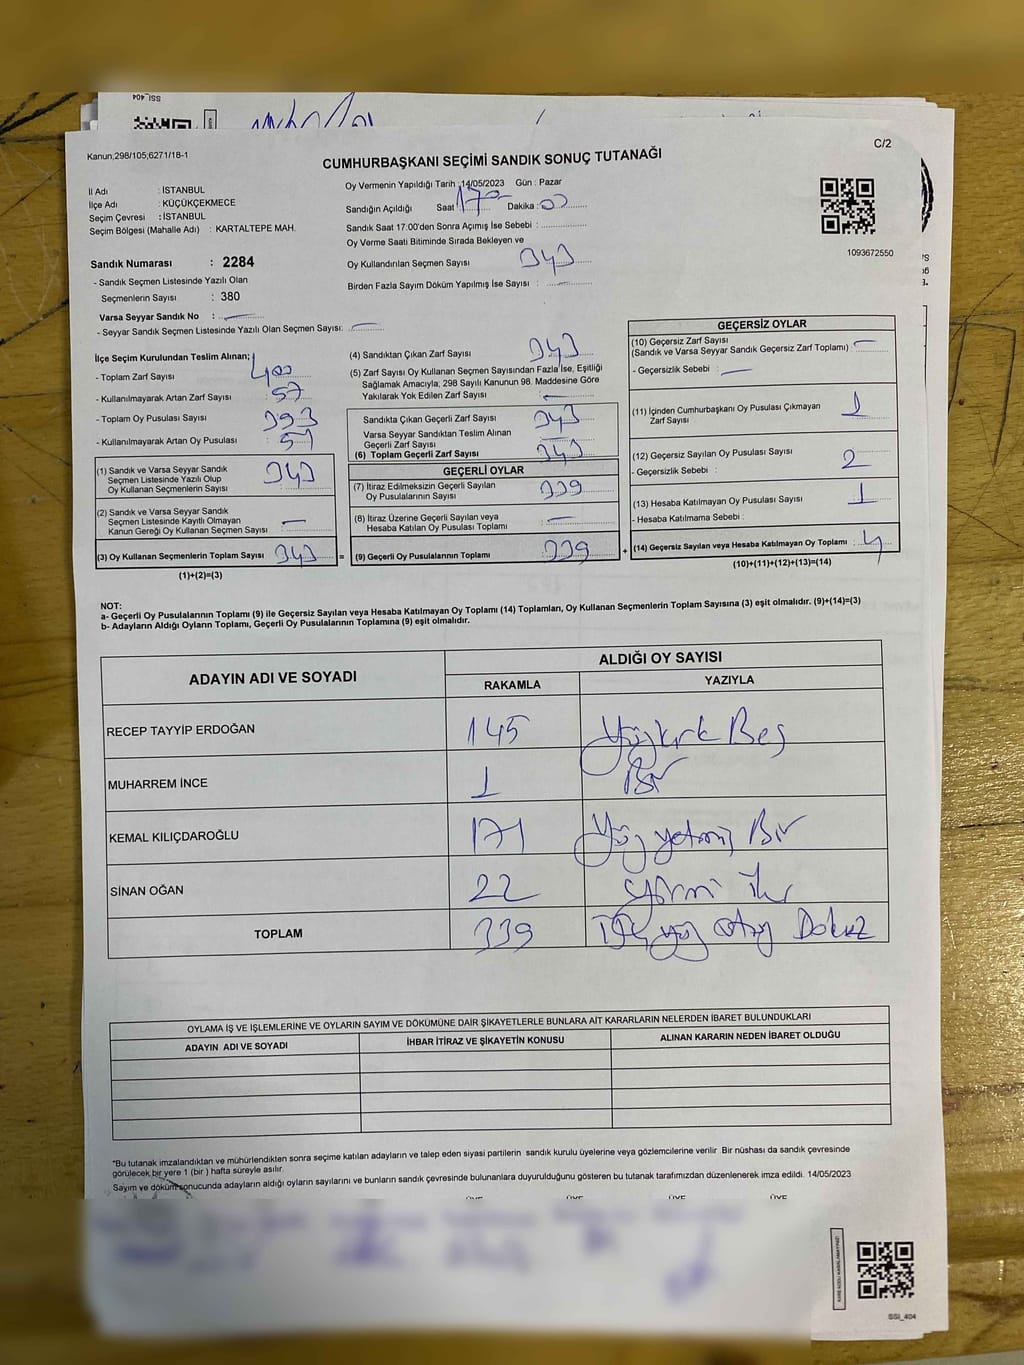 SSI_404
Kanun,298/105;6271/18-1
C/2
CUMHURBAŞKANI SEÇİMİ SANDIK SONUÇ TUTANAĞI
İl Adı : İSTANBUL
İlçe Adı : KÜÇÜKÇEKMECE
Seçim Çevresi : İSTANBUL
Seçim Bölgesi (Mahalle Adı) : KARTALTEPE MAH.
Oy Vermenin Yapıldığı Tarih :14/05/2023 Gün : Pazar
Sandığın Açıldığı Saat 17 Dakika : 00
Sandık Saat 17:00'den Sonra Açılmış İse Sebebi :
Oy Verme Saati Bitiminde Sırada Bekleyen ve
Oy Kullandırılan Seçmen Sayısı 343
Birden Fazla Sayım Döküm Yapılmış İse Sayısı : —
1093672550
Sandık Numarası : 2284
- Sandık Seçmen Listesinde Yazılı Olan
Seçmenlerin Sayısı : 380
Varsa Seyyar Sandık No : —
- Seyyar Sandık Seçmen Listesinde Yazılı Olan Seçmen Sayısı: —
İlçe Seçim Kurulundan Teslim Alınan;
- Toplam Zarf Sayısı 400
- Kullanılmayarak Artan Zarf Sayısı : 57
- Toplam Oy Pusulası Sayısı : 393
- Kullanılmayarak Artan Oy Pusulası :
(1) Sandık ve Varsa Seyyar Sandık
Seçmen Listesinde Yazılı Olup
Oy Kullanan Seçmenlerin Sayısı : 343
(2) Sandık ve Varsa Seyyar Sandık
Seçmen Listesinde Kayıtlı Olmayan
Kanun Gereği Oy Kullanan Seçmen Sayısı : —
(3) Oy Kullanan Seçmenlerin Toplam Sayısı : 343 =
(1)+(2)=(3)
(4) Sandıktan Çıkan Zarf Sayısı 343
(5) Zarf Sayısı Oy Kullanan Seçmen Sayısından Fazla İse, Eşitliği
Sağlamak Amacıyla; 298 Sayılı Kanunun 98. Maddesine Göre
Yakılarak Yok Edilen Zarf Sayısı : —
Sandıkta Çıkan Geçerli Zarf Sayısı : 343
Varsa Seyyar Sandıktan Teslim Alınan
Geçerli Zarf Sayısı : —
(6) Toplam Geçerli Zarf Sayısı : 343
GEÇERLİ OYLAR
(7) İtiraz Edilmeksizin Geçerli Sayılan
Oy Pusulalarının Sayısı : 339
(8) İtiraz Üzerine Geçerli Sayılan veya
Hesaba Katılan Oy Pusulası Toplamı : —
(9) Geçerli Oy Pusulalarının Toplamı : 339 +
GEÇERSİZ OYLAR
(10) Geçersiz Zarf Sayısı
(Sandık ve Varsa Seyyar Sandık Geçersiz Zarf Toplamı) : —
- Geçersizlik Sebebi : —
(11) İçinden Cumhurbaşkanı Oy Pusulası Çıkmayan
Zarf Sayısı : 1
(12) Geçersiz Sayılan Oy Pusulası Sayısı : 2
- Geçersizlik Sebebi :
(13) Hesaba Katılmayan Oy Pusulası Sayısı : 1
- Hesaba Katılmama Sebebi :
(14) Geçersiz Sayılan veya Hesaba Katılmayan Oy Toplamı : 4
(10)+(11)+(12)+(13)=(14)
NOT:
a- Geçerli Oy Pusulalarının Toplamı (9) ile Geçersiz Sayılan veya Hesaba Katılmayan Oy Toplamı (14) Toplamları, Oy Kullanan Seçmenlerin Toplam Sayısına (3) eşit olmalıdır. (9)+(14)=(3)
b- Adayların Aldığı Oyların Toplamı, Geçerli Oy Pusulalarının Toplamına (9) eşit olmalıdır.
ADAYIN ADI VE SOYADI
ALDIĞI OY SAYISI
RAKAMLA YAZIYLA
RECEP TAYYİP ERDOĞAN 145 Yüzkırk Beş
MUHARREM İNCE 1 Bir
KEMAL KILIÇDAROĞLU 171 Yüz yetmiş Bir
SİNAN OĞAN 22 yirmi iki
TOPLAM 339 Üç yüz otuz Dokuz
OYLAMA İŞ VE İŞLEMLERİNE VE OYLARIN SAYIM VE DÖKÜMÜNE DAİR ŞİKAYETLERLE BUNLARA AİT KARARLARIN NELERDEN İBARET BULUNDUKLARI
ADAYIN ADI VE SOYADI İHBAR İTİRAZ VE ŞİKAYETİN KONUSU ALINAN KARARIN NEDEN İBARET OLDUĞU
"Bu tutanak imzalandıktan ve mühürlendikten sonra seçime katılan adayların ve talep eden siyasi partilerin sandık kurulu üyelerine veya gözlemcilerine verilir .Bir nüshası da sandık çevresinde
görülecek bir yere 1 (bir ) hafta süreyle asılır.
Sayım ve döküm sonucunda adayların aldığı oyların sayılarını ve bunların sandık çevresinde bulunanlara duyurulduğunu gösteren bu tutanak tarafımızdan düzenlenerek imza edildi. 14/05/2023
ÜYE ÜYE ÜYE ÜYE
SSI_404